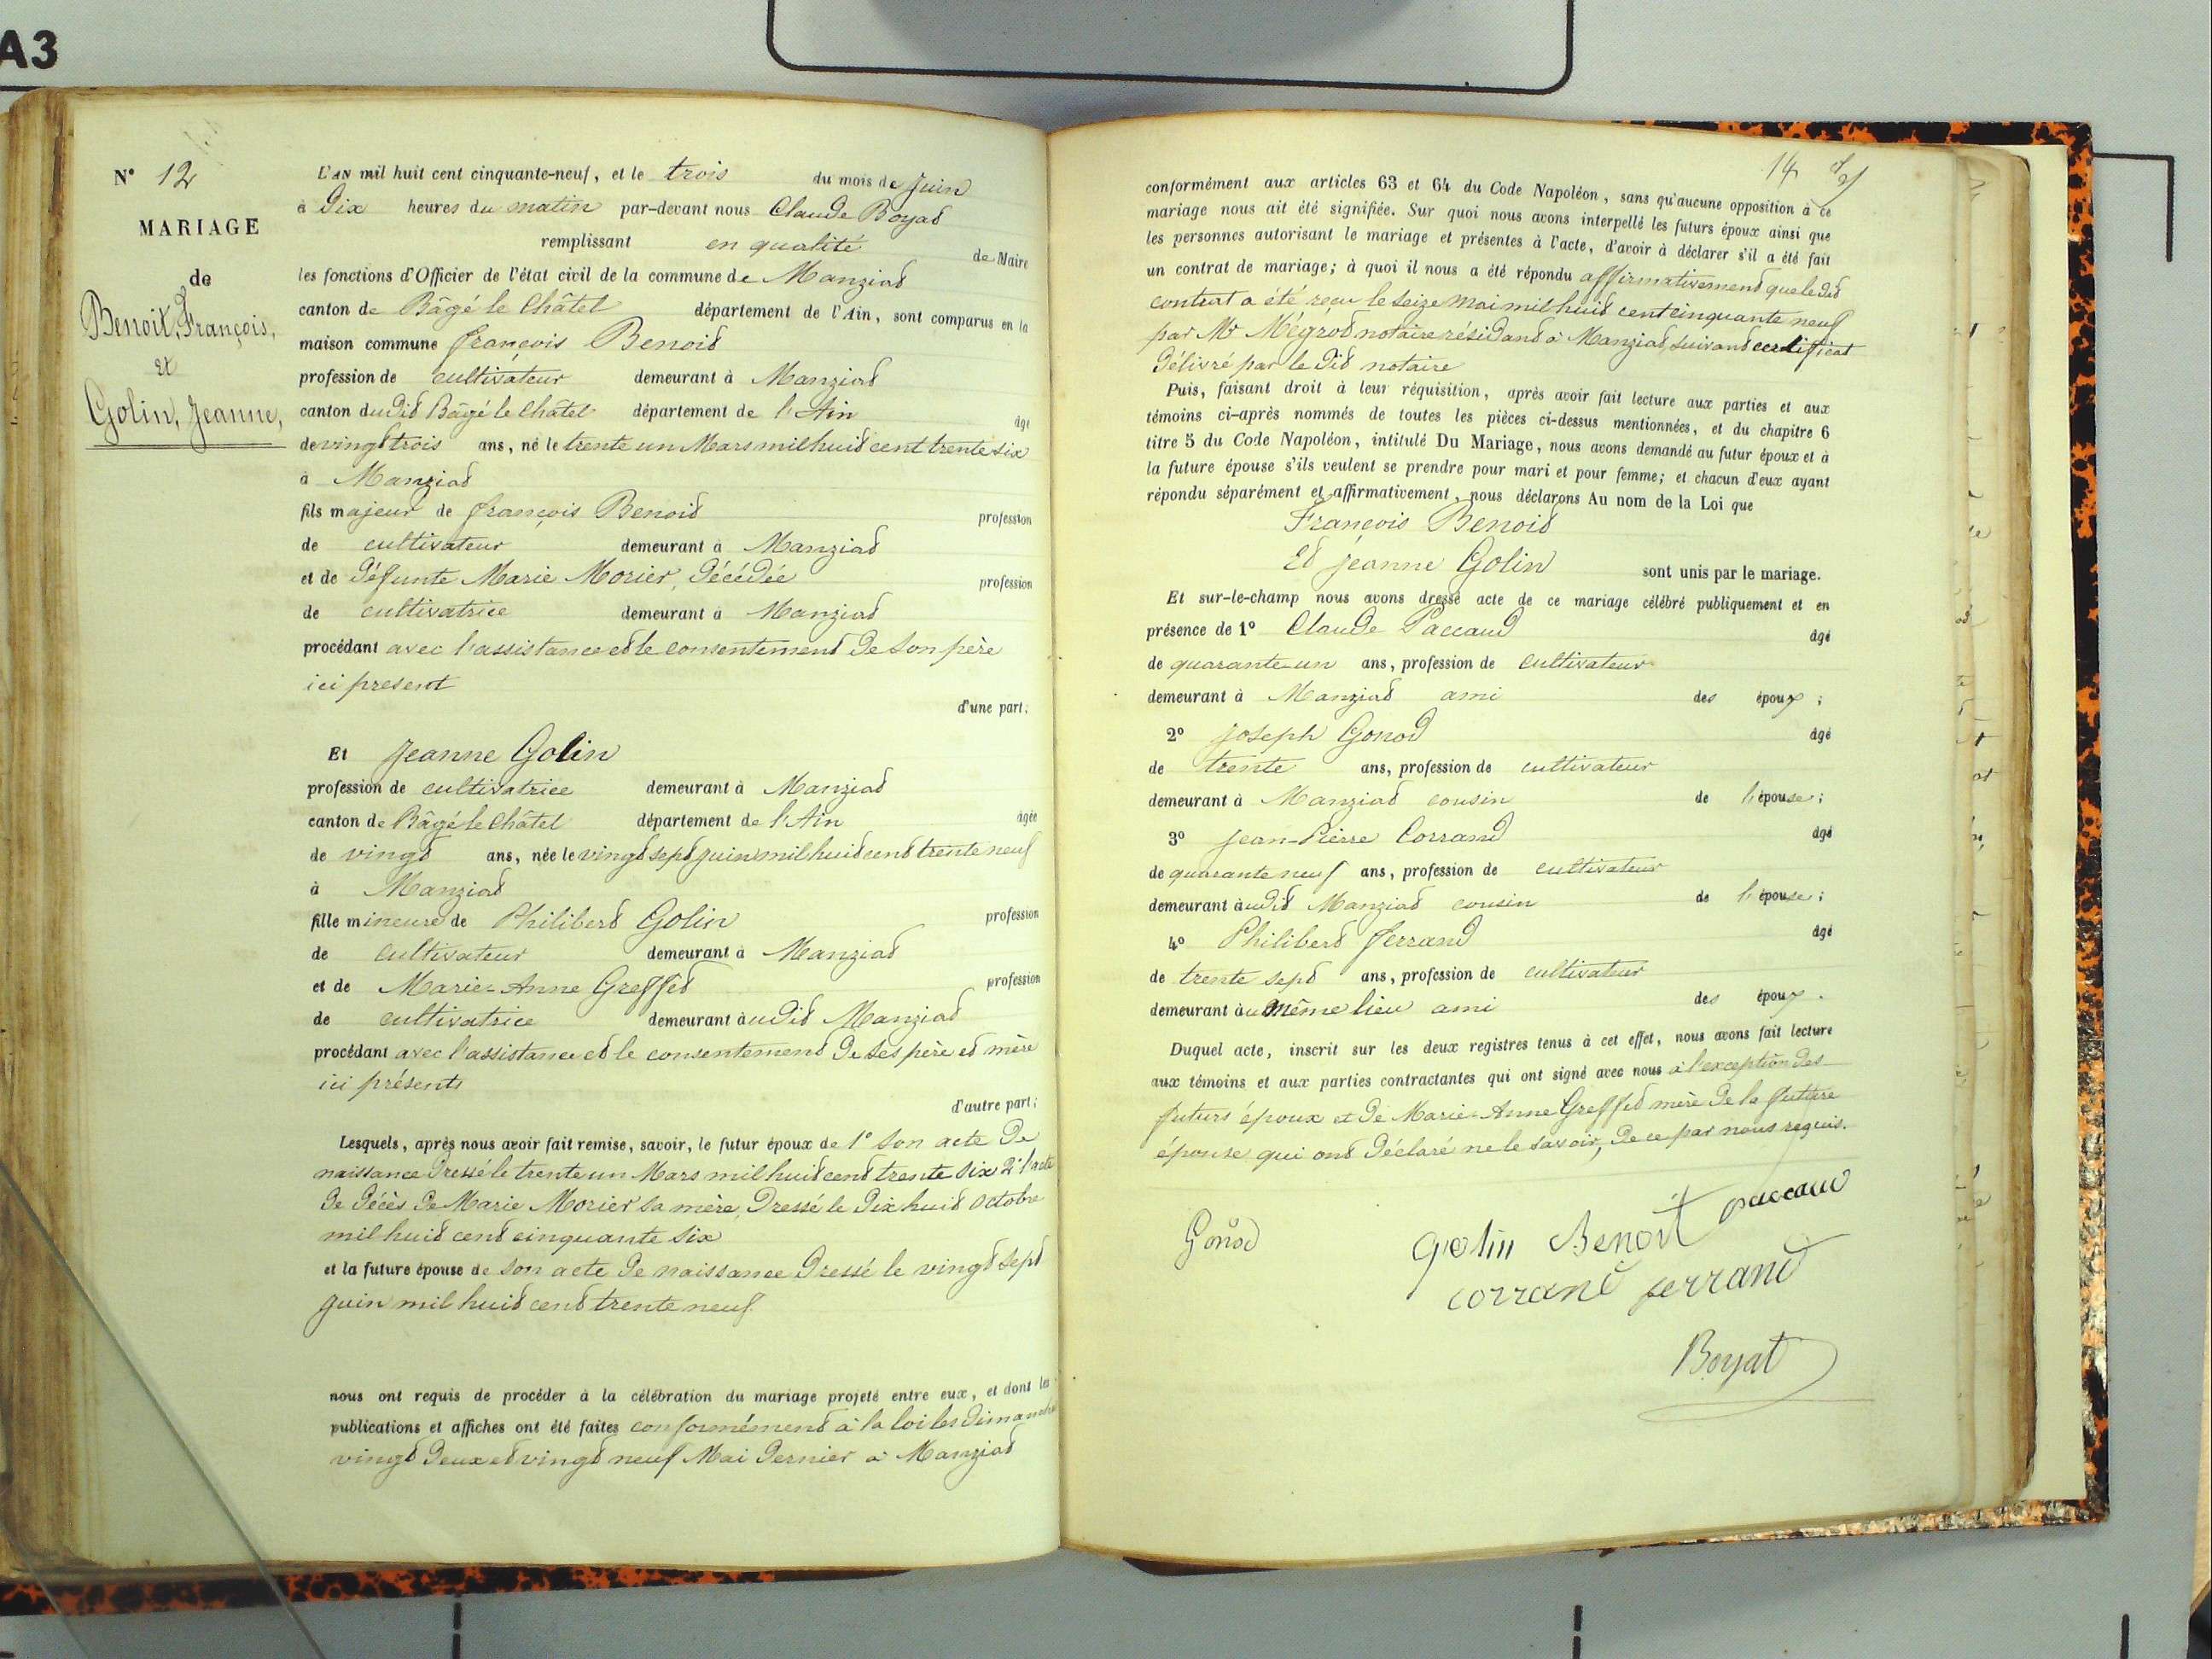 A3
N° 12
MARIAGE
de
Benoit, François,
et
Golin, Jeanne,
L'AN mil huit cent cinquante-neuf, et le trois du mois de Juin
à Dix heures du matin par-devant nous Claude Boyat
remplissant en qualité de Maire
les fonctions d'Officier de l'état civil de la commune de Manziat
canton de Bâgé le Châtel département de l'Ain, sont comparus en la
maison commune François Benoit
profession de cultivateur demeurant à Manziat
canton dudit Bâgé le Châtel département de l'Ain âgé
de vingt trois ans, né le trente un Mars mil huit cent trente six
à Manziat
fils majeur de François Benoit profession
de cultivateur demeurant à Manziat
et de Défunte Marie Morier, Décédée profession
de cultivatrice demeurant à Manziat
procédant avec l'assistance et le consentement de son père
ici présent
d'une part;
Et Jeanne Golin
profession de cultivatrice demeurant à Manziat
canton de Bâgé le Châtel département de l'Ain âgée
de vingt ans, née le vingt sept Juin mil huit cent trente neuf
à Manziat
fille mineure de Philibert Golin profession
de cultivateur demeurant à Manziat
et de Marie-Anne Greffet profession
de cultivatrice demeurant àudit Manziat
procédant avec l'assistance et le consentement de ses père et mère
ici présents
d'autre part;
Lesquels, après nous avoir fait remise, savoir, le futur époux de 1° son acte de
naissance Dressé le trente un Mars mil huit cent trente six 2° l'acte
de Décès de Marie Morier sa mère, Dressé le Dix huit Octobre
mil huit cent cinquante six
et la future épouse de son acte de naissance Dressé le vingt sept
Juin mil huit cent trente neuf
nous ont requis de procéder à la célébration du mariage projeté entre eux, et dont les
publications et affiches ont été faites conformément à la loi les dimanches
vingt Deux et vingt neuf Mai Dernier à Manziat
14
conformément aux articles 63 et 64 du Code Napoléon, sans qu'aucune opposition à ce
mariage nous ait été signifiée. Sur quoi nous avons interpellé les futurs époux ainsi que
les personnes autorisant le mariage et présentes à l'acte, d'avoir à déclarer s'il a été fait
un contrat de mariage; à quoi il nous a été répondu affirmativement que ledit
contrat a été reçu le seize Mai mil huit cent cinquante neuf
par Mr Mégrot notaire résidant à Manziat, suivant certificat
Délivré par le dit notaire
Puis, faisant droit à leur réquisition, après avoir fait lecture aux parties et aux
témoins ci-après nommés de toutes les pièces ci-dessus mentionnées, et du chapitre 6
titre 5 du Code Napoléon, intitulé Du Mariage, nous avons demandé au futur époux et à
la future épouse s'ils veulent se prendre pour mari et pour femme; et chacun d'eux ayant
répondu séparément et affirmativement, nous déclarons Au nom de la Loi que
François Benoit
Et Jeanne Golin sont unis par le mariage.
Et sur-le-champ nous avons dressé acte de ce mariage célébré publiquement et en
présence de 1° Claude Paccaud âgé
de quarante-un ans, profession de cultivateur
demeurant à Manziat ami des époux;
2° Joseph Gonod âgé
de trente ans, profession de cultivateur
demeurant à Manziat cousin de l'épouse;
3° Jean-Pierre Corrand âgé
de quarante neuf ans, profession de cultivateur
demeurant àudit Manziat cousin de l'épouse;
4° Philibert Ferrand âgé
de trente sept ans, profession de cultivateur
demeurant àu même lieu ami des époux.
Duquel acte, inscrit sur les deux registres tenus à cet effet, nous avons fait lecture
aux témoins et aux parties contractantes qui ont signé avec nous à l'exception des
futurs époux et de Marie-Anne Greffet mère de la future
épouse qui ont Déclaré ne le savoir, de ce par nous requis.
Gonod golin Benoit paccaud
corrand ferrand
Boyat